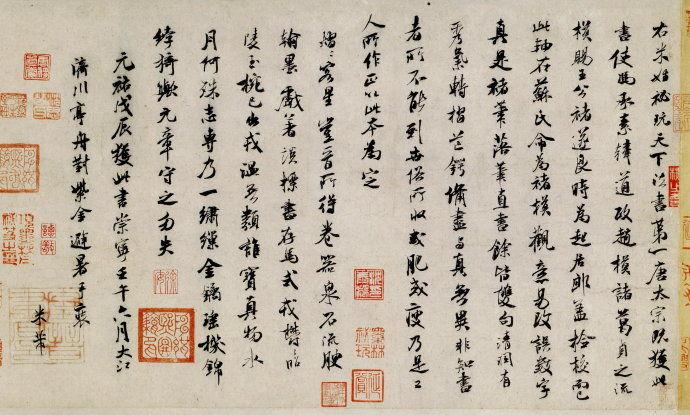 右米姓秘玩天下法書第一唐太宗既獲此
書使馮承素韓道政趙模諸葛貞之流
模賜王公褚遂良時為起居郎蓋檢校而已
此軸在蘇氏命為褚模觀意易改誤數字
真是褚筆落筆直書餘皆雙勾清潤有
秀氣轉摺芒鍔備盡與真無異非知書
者所不能到世俗所收或肥或瘦乃是工
人所作正以此本為定
熠〻客星豈晉所得卷器泉石流腴
翰墨戲著談標書存馬式欝〻昭
陵玉椀已出戎溫無類誰寶真物水
月何殊志專乃一繡繅金鐍瑤機錦
綍猗歟元章守之勿失
元祐戊辰獲此書崇寧壬午六月大江
濟川亭舟對紫金避暑手裝
米芾